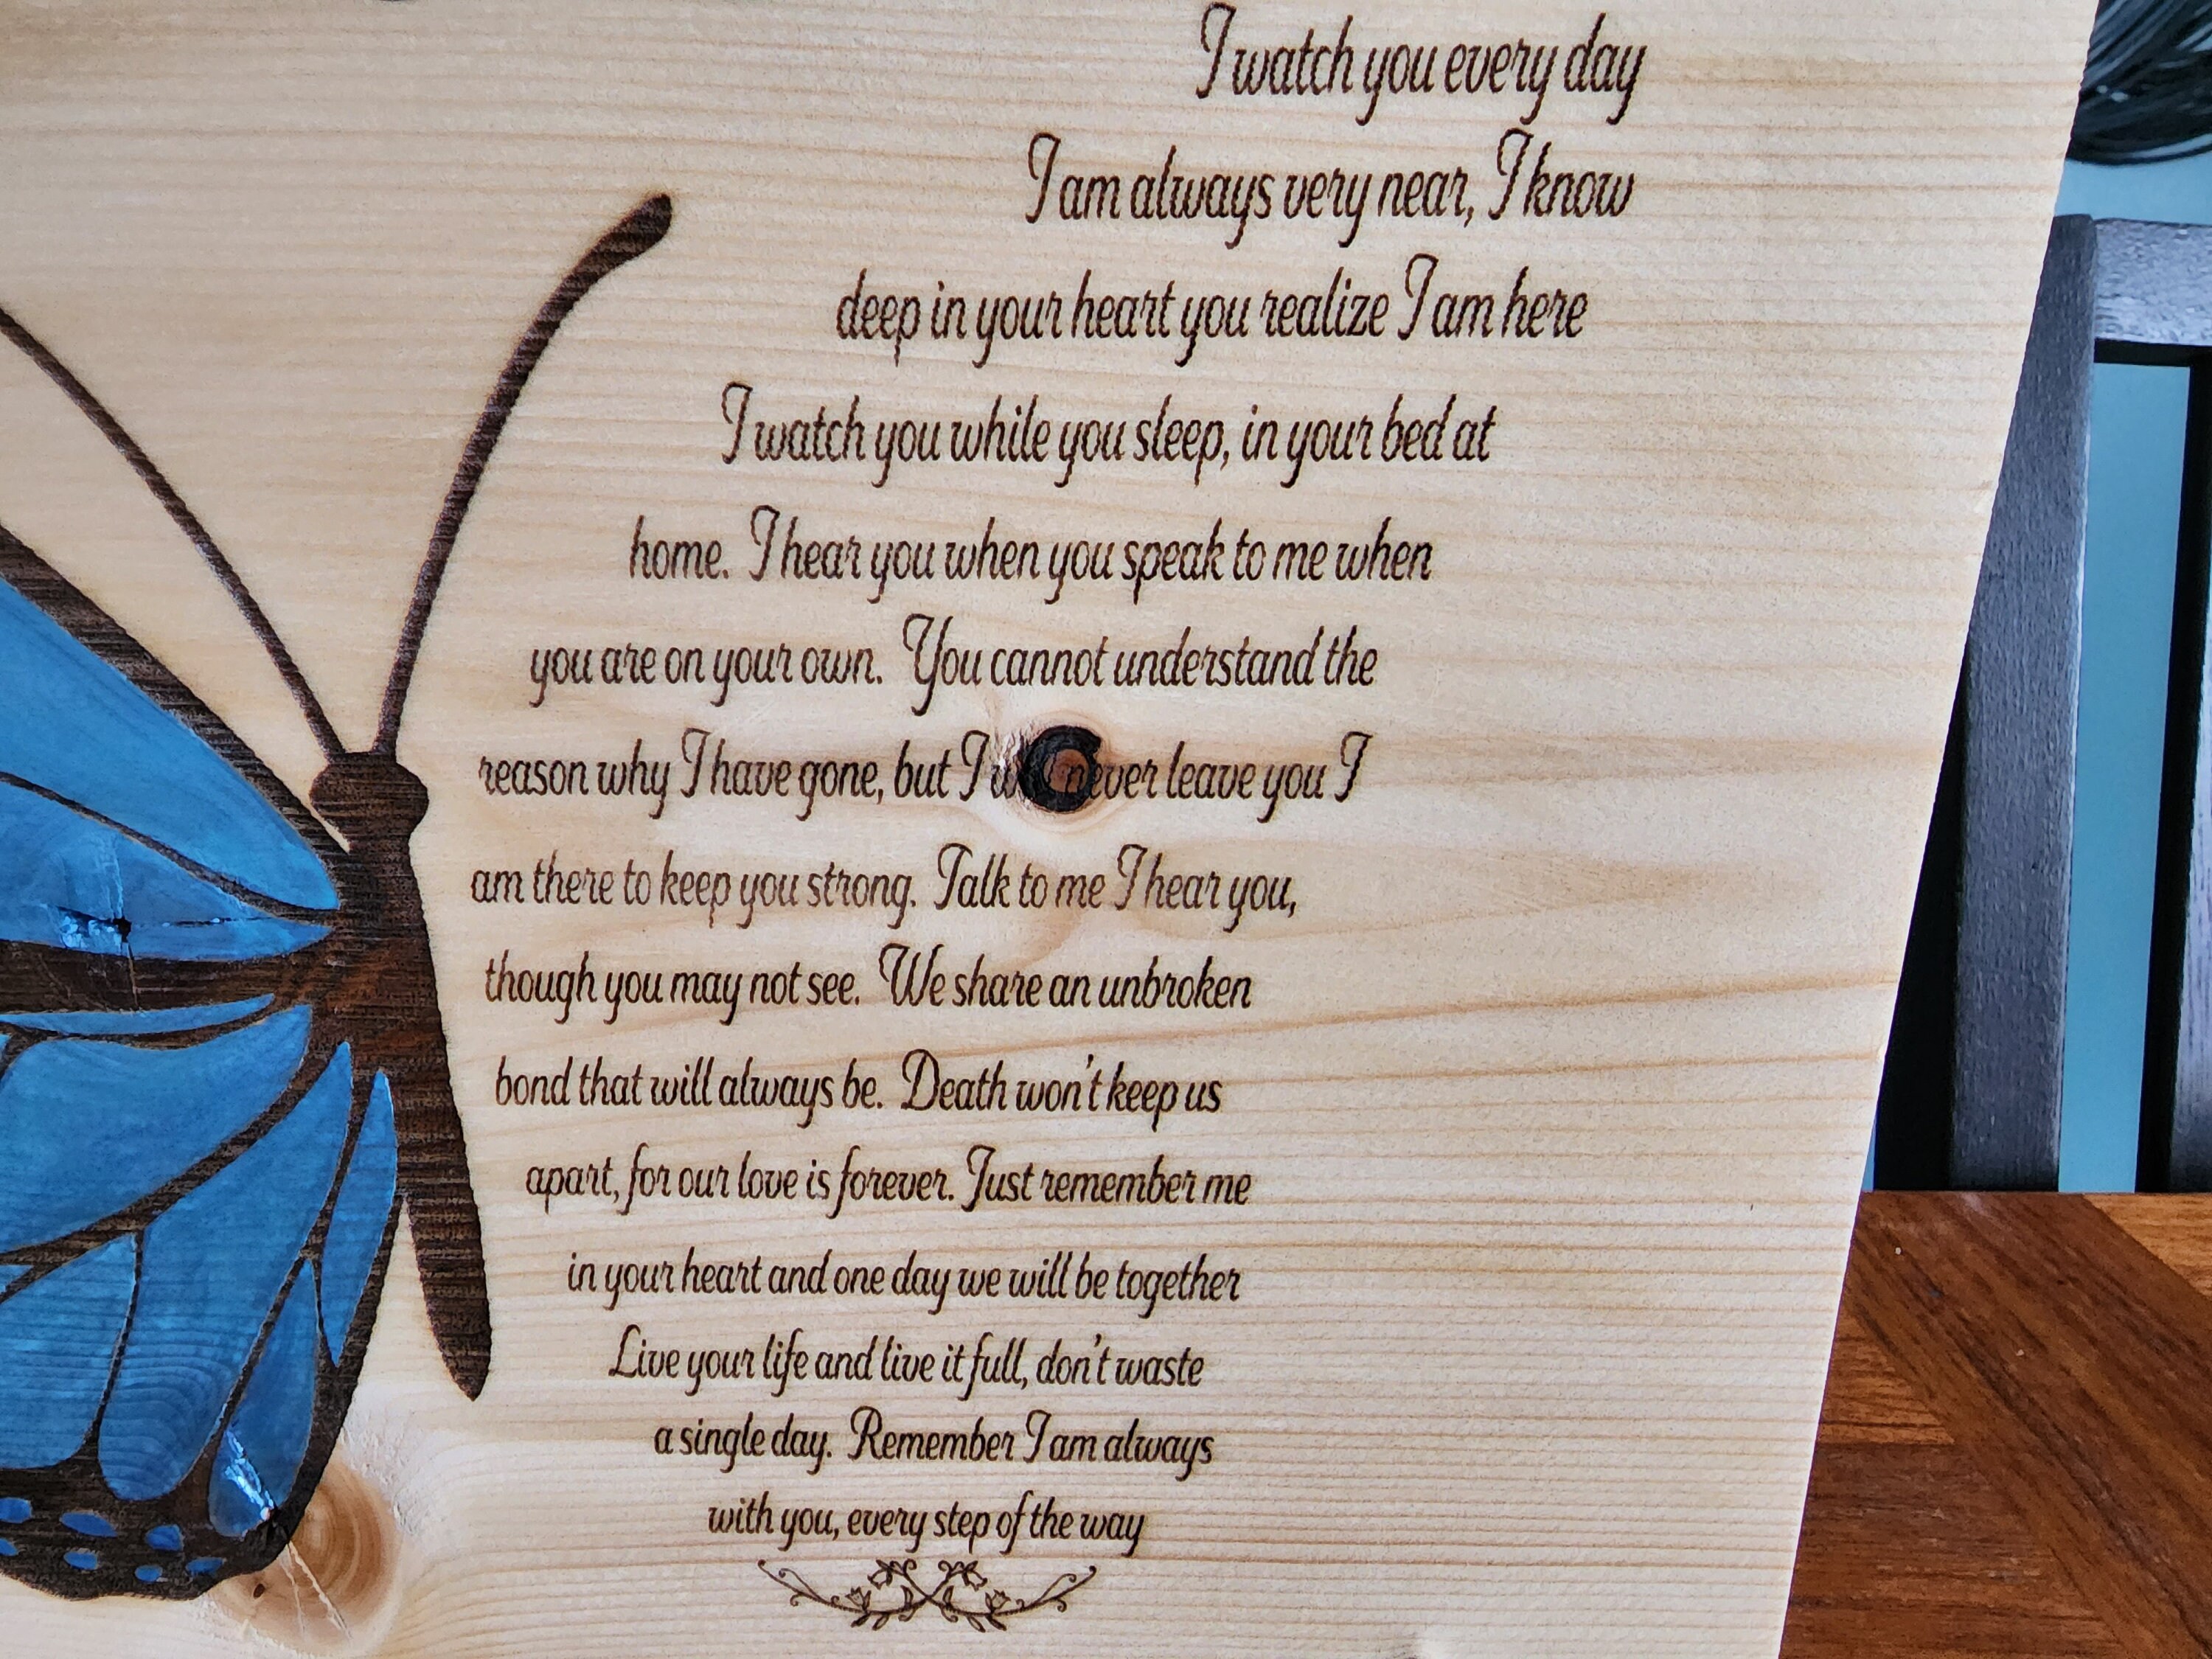 I watch you every day
I am always very near, I know
deep in your heart you realize I am here
I watch you while you sleep, in your bed at
home. I hear you when you speak to me when
you are on your own. You cannot understand the
reason why I have gone, but I will never leave you I
am there to keep you strong. Talk to me I hear you,
though you may not see. We share an unbroken
bond that will always be. Death won't keep us
apart, for our love is forever. Just remember me
in your heart and one day we will be together
Live your life and live it full, don't waste
a single day. Remember I am always
with you, every step of the way